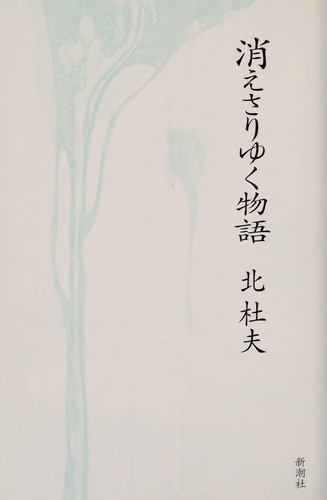 消えさりゆく物語 北杜夫
新潮社